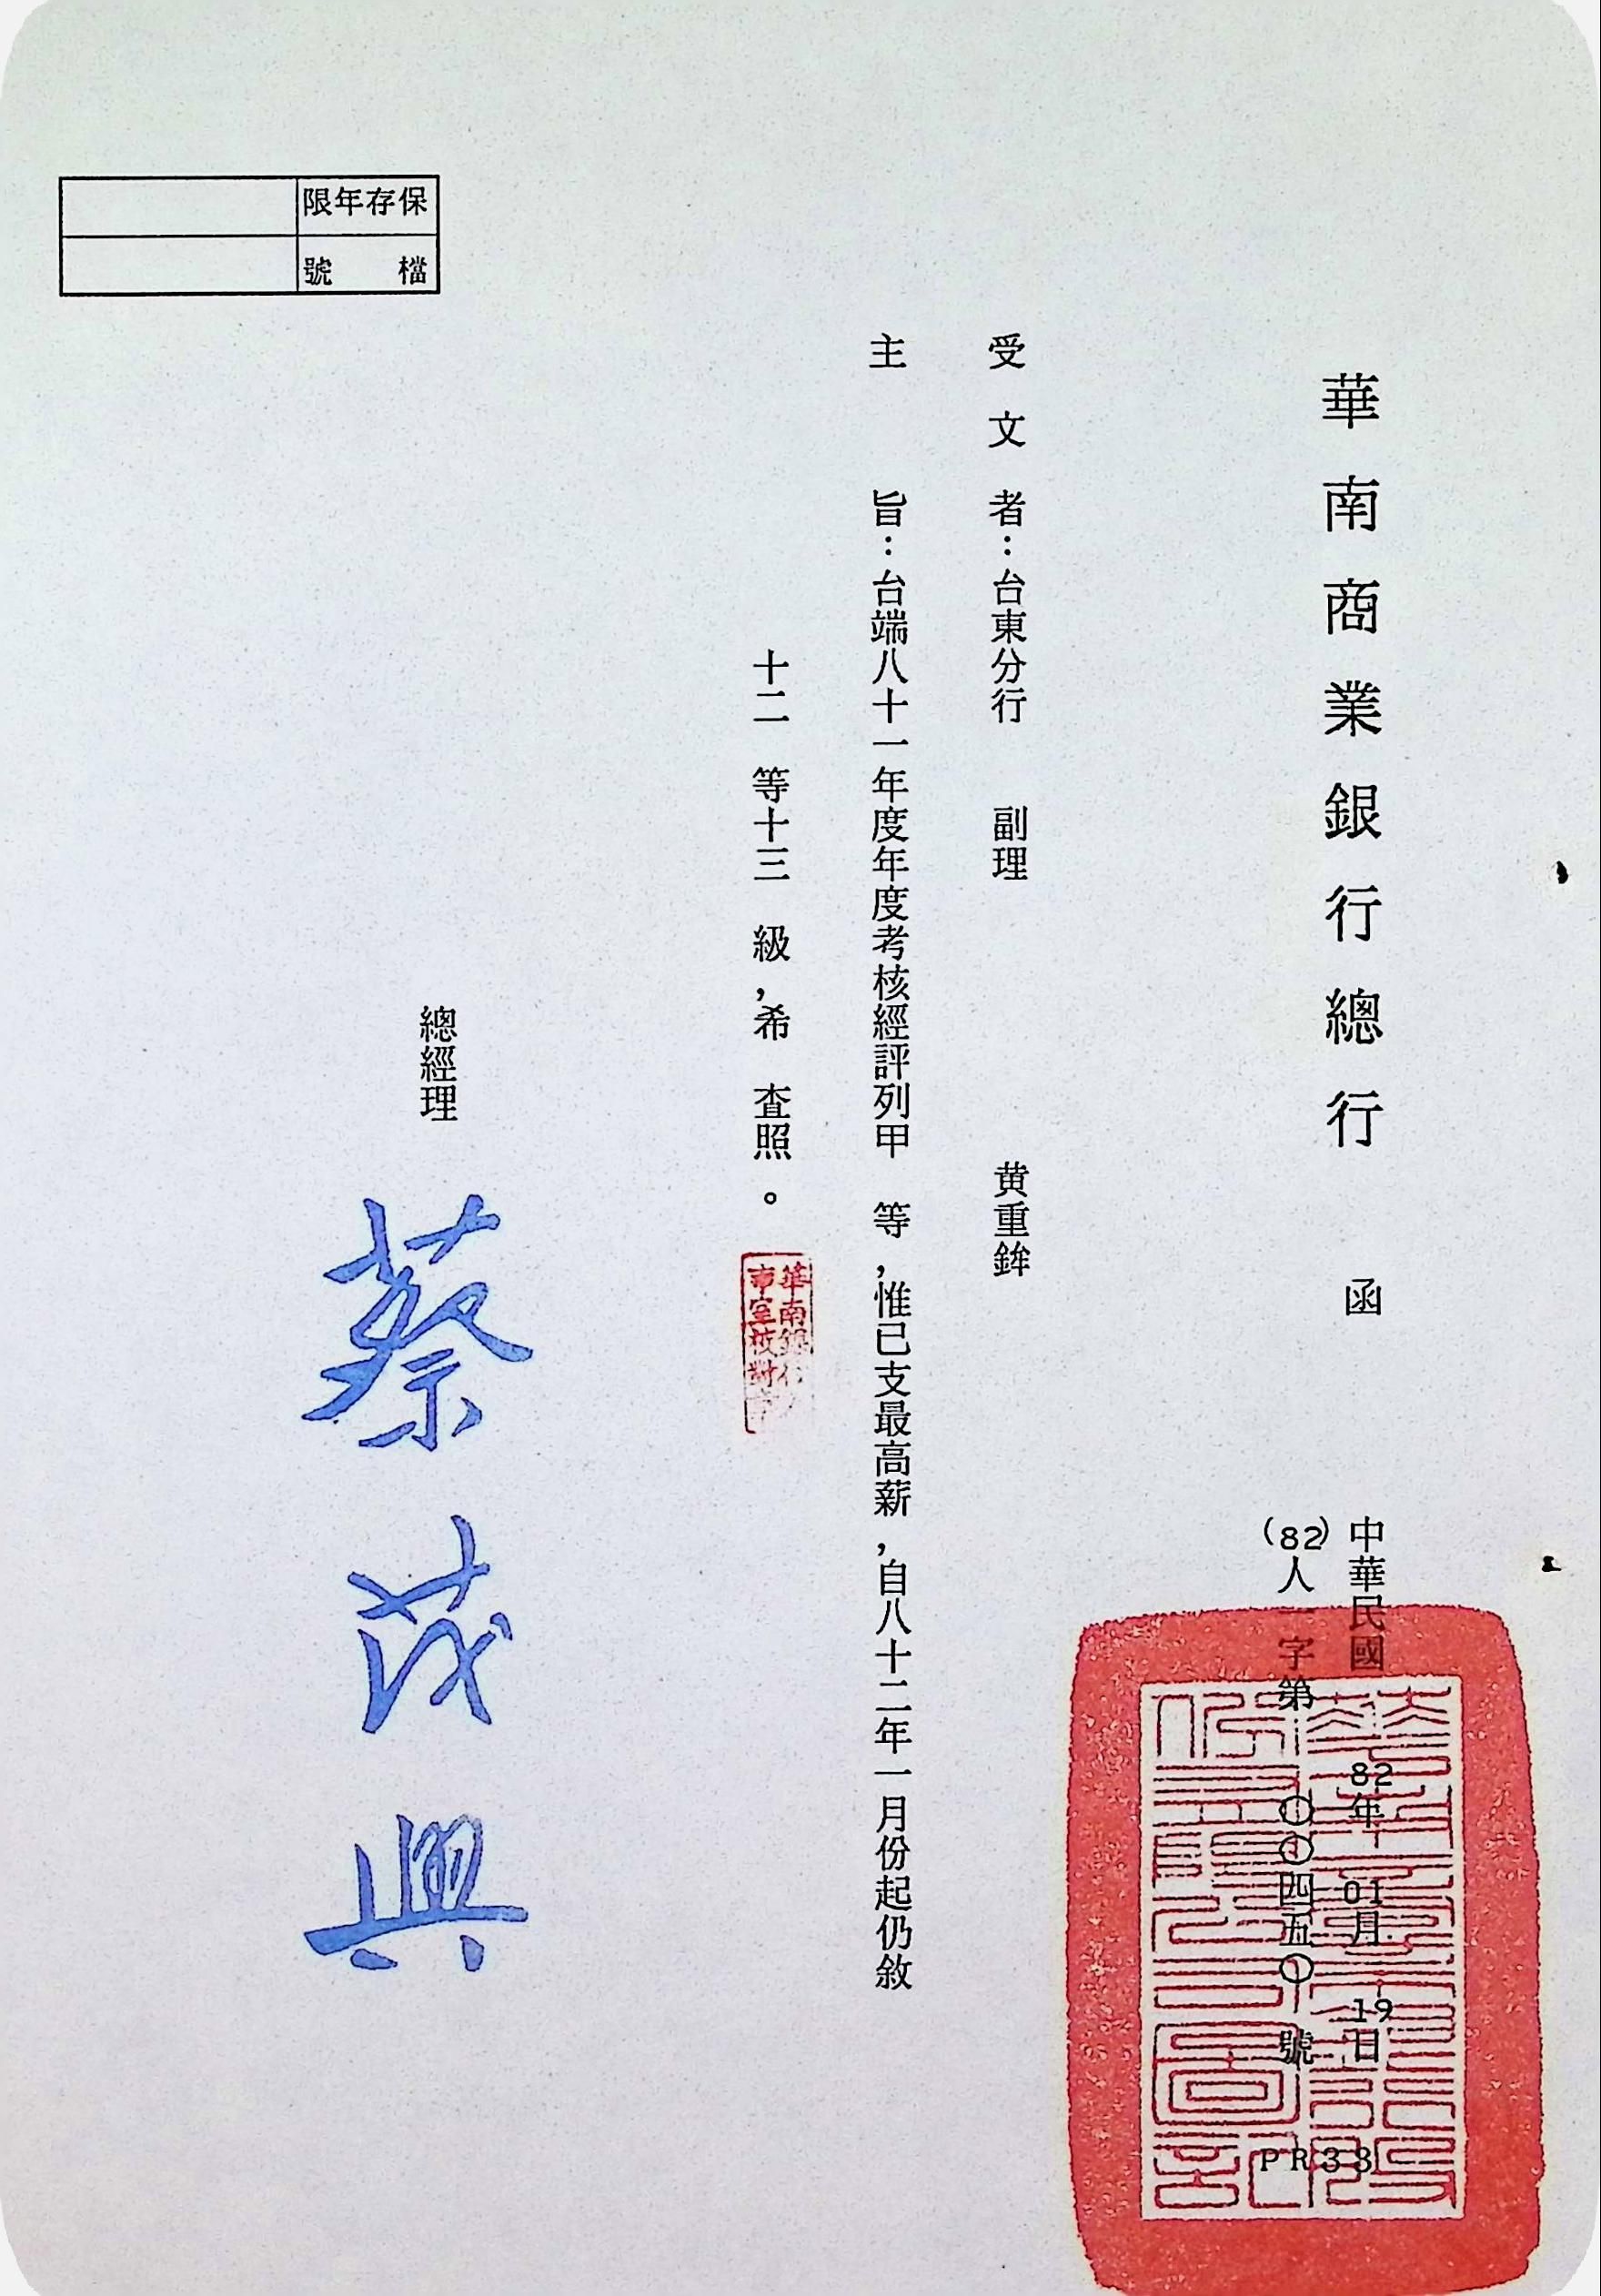 華南商業銀行總行 函
中華民國 82年 01月 19日
(82)人一字第 〇〇四五〇 號
PR38
受文者：台東分行 副理 黄重鉾
主旨：台端八十一年度年度考核經評列甲 等，惟已支最高薪，自八十二年一月份起仍敘
十二 等十三 級，希 查照。
總經理 蔡茂興
保存年限
檔號